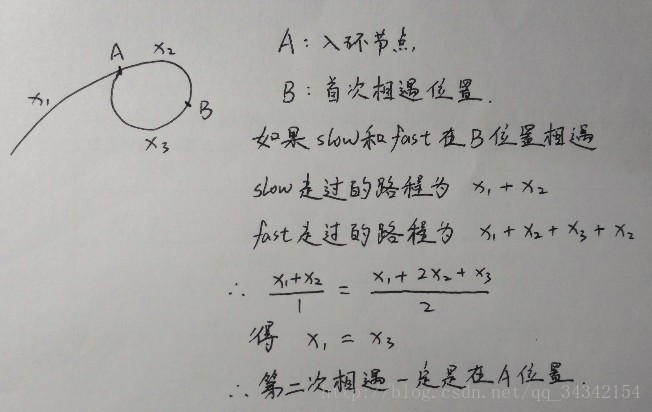 A
x₂
x₁
B
x₃
A：入环节点.
B：首次相遇位置.
如果 slow和fast 在B位置相遇
slow 走过的路程为 x₁ + x₂
fast 走过的路程为 x₁ + x₂ + x₃ + x₂
∴ (x₁+x₂)/1 = (x₁ + 2x₂ + x₃)/2
得 x₁ = x₃
∴ 第二次相遇一定是在A位置.
http://blog.csdn.net/qq_34342154